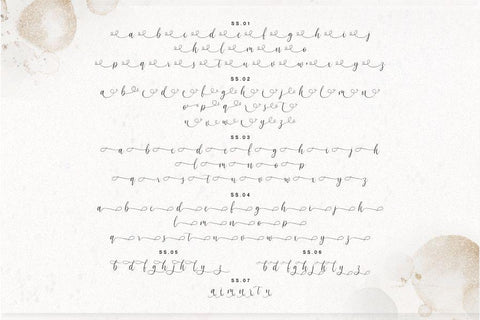 SS.01
a b c d e f g h i j
k l m n o
p q r s t u v w x y z
SS.02
a b c d e f g h i j k l m n
o p q r s t
u v w x y z
SS.03
a b c d e f g h i j k
l m n o p
q r s t u v w x y z
SS.04
a b c d e f g h i j k
l m n o p
q r s t u v w x y z
SS.05
SS.06
SS.07